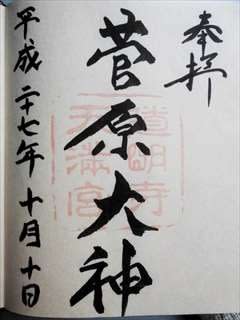 奉拝
菅原大神
道明寺
天満宮
平成二十七年十月十日